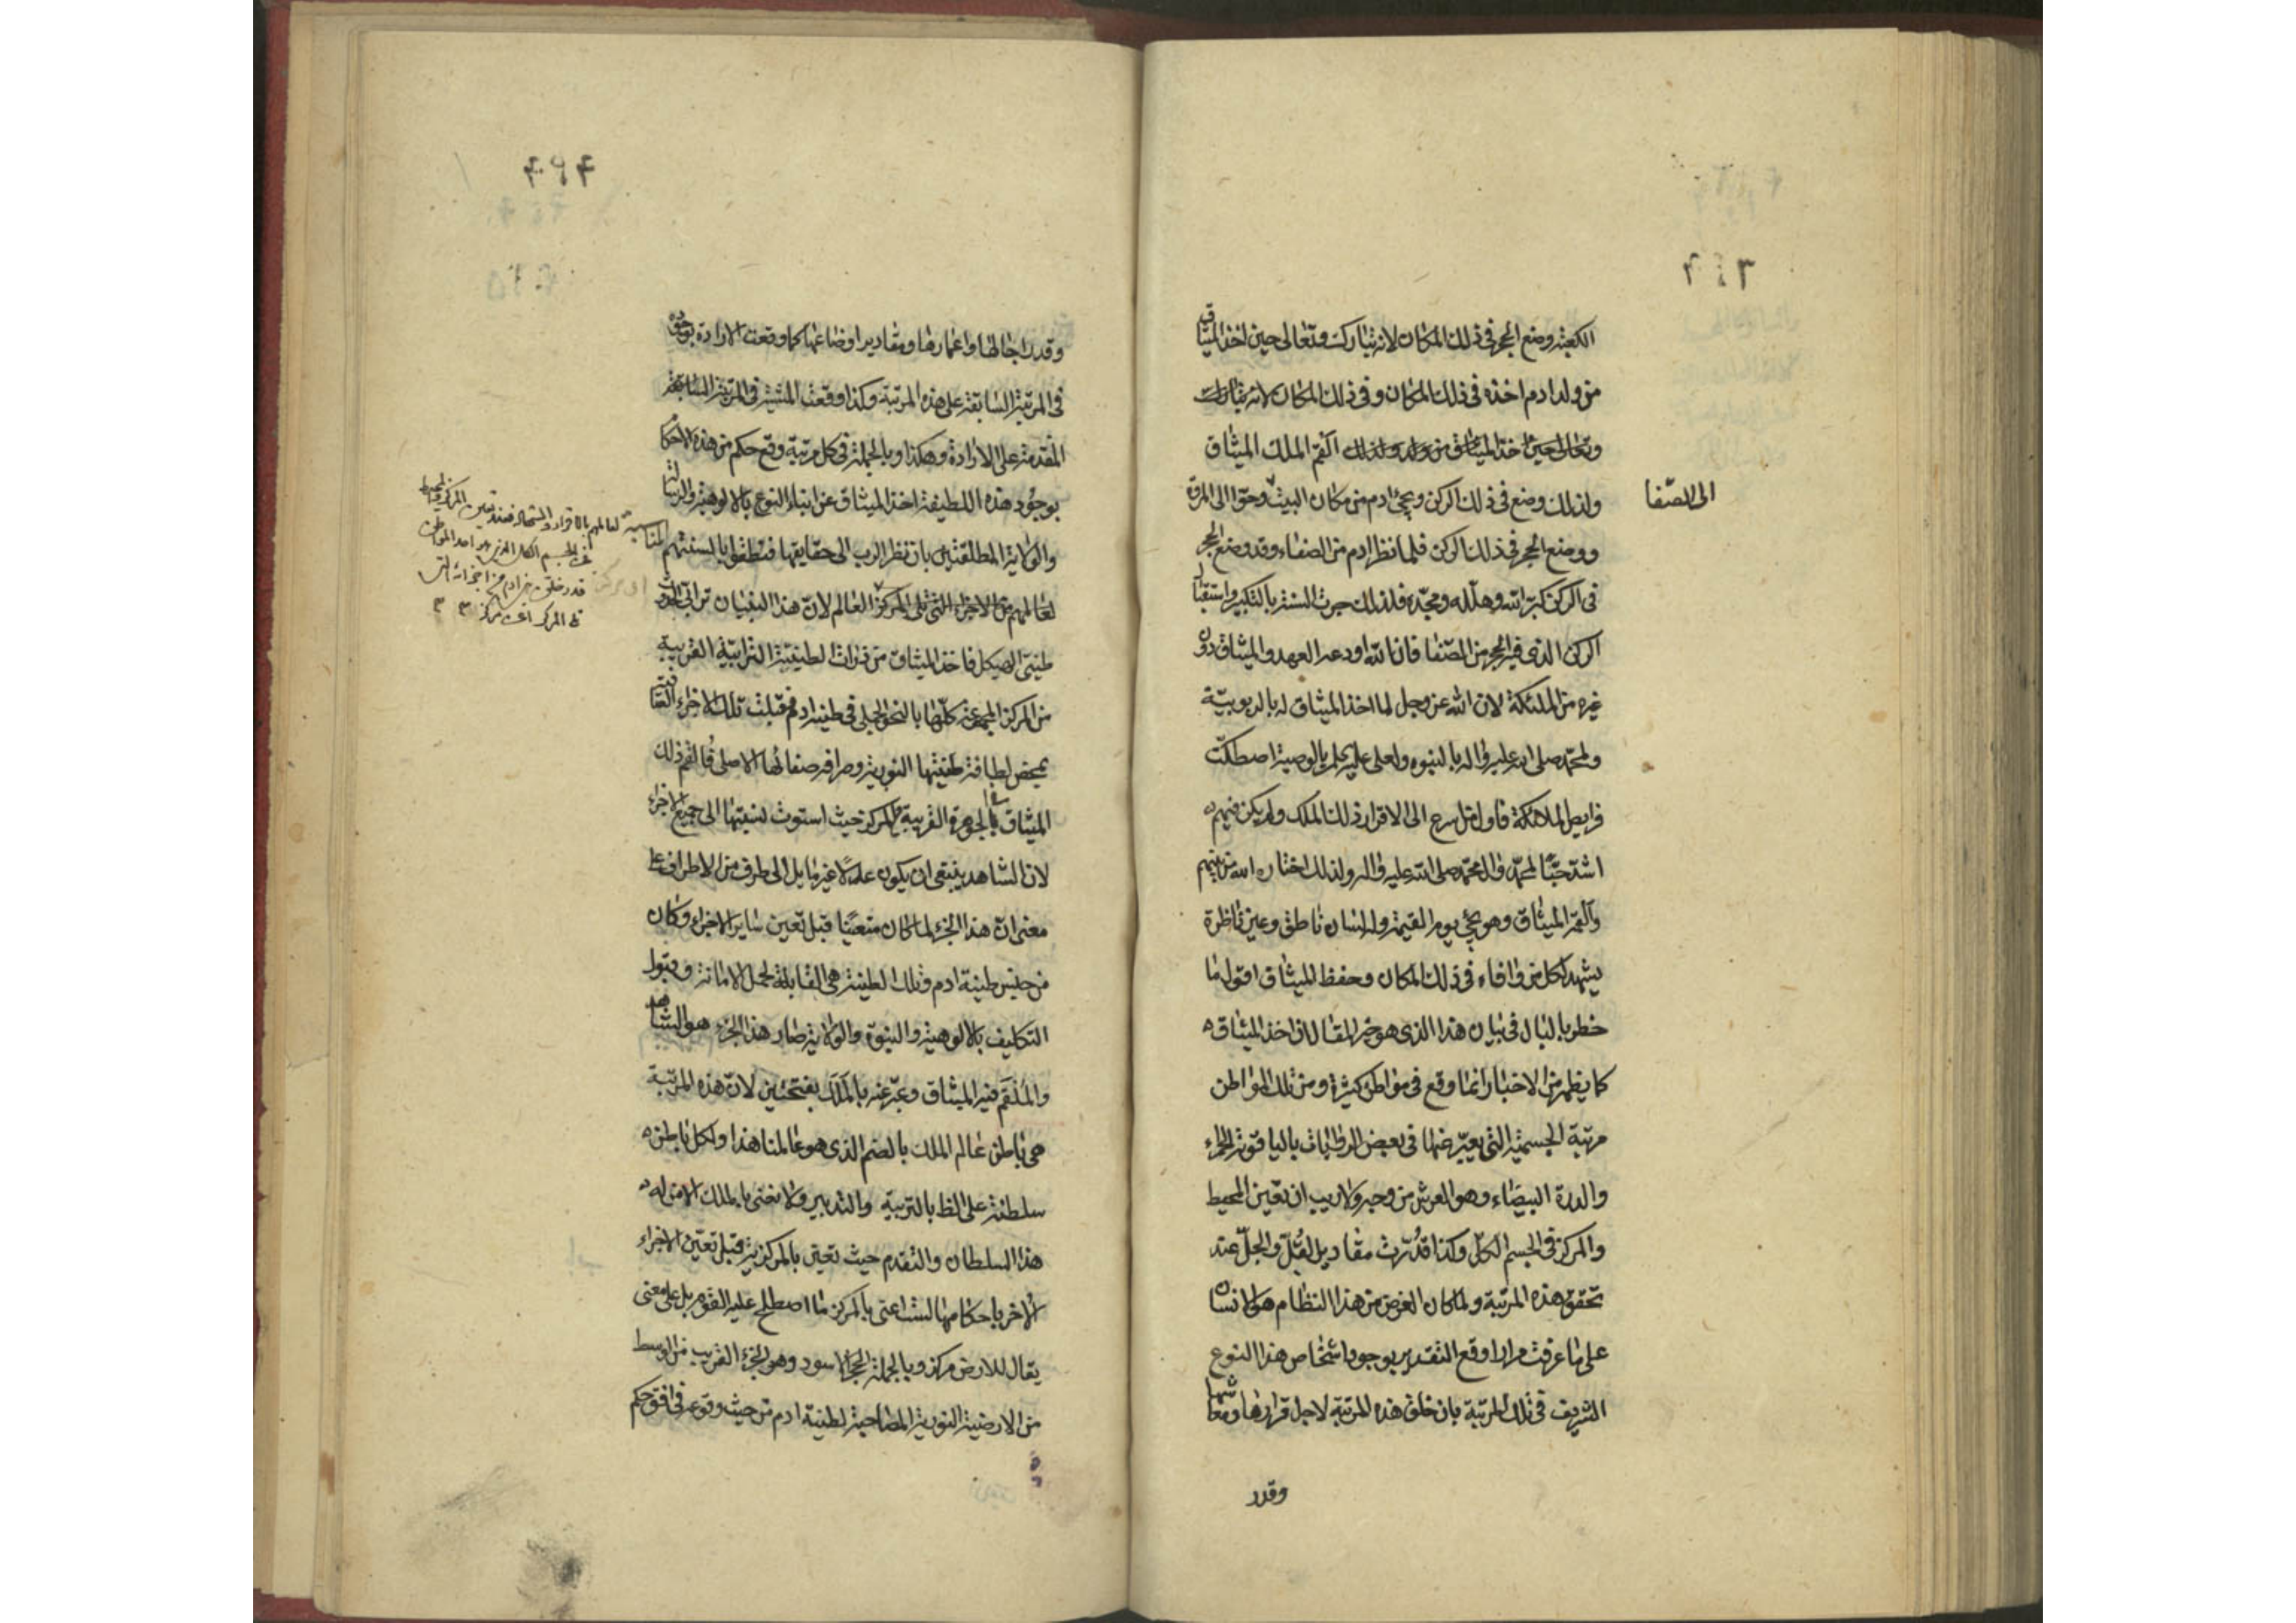 ٢٤٩
الكعبة وضع الحجر في ذلك المكان لانه تبارك وتعالى حين اخذ الميثاق
من ولد ادم اخذه في ذلك المكان وفي ذلك المكان لانه تبارك
وتعالى حين اخذ الميثاق من ولد ولذلك القم الملك الميثاق
ولذلك وضع في ذلك الركن ونحّى ادم من مكان البيت وحوّا الى المروة
الى الصّفا
ووضع الحجر في ذلك الركن فلما نظر ادم من الصفاء وقد وضع الحجر
في الركن كبّر الله وهلّله ومجّده فلذلك جرت السنة بالتكبير واستقبال
الركن الذي فيه الحجر من الصّفا فان الله اودعه العهد والميثاق دون
غيره من الملئكة لان الله عز وجل لما اخذ الميثاق له بالربوبيّة
ولمحمّد صلى الله عليه واله بالنبوه ولعلى عليه بالوصية اصطكّت
فرايص الملائكة فاول من اسرع الى الاقرار ذلك الملك ولم يكن فيهم
اشدّ حبّاً لمحمّد وال محمّد صلى الله عليه واله ولذلك اختاره الله من بينهم
والقمه الميثاق وهو يجئ يوم القيمة وله لسان ناطق وعين ناظرة
يشهد لكل من وافاه في ذلك المكان وحفظ الميثاق اقول ما
خطر بالبال في بيان هذا الذي هو خير المقال ان اخذ الميثاق
كما يظهر من الاخبار انما وقع في مواطن كثيرة ومن تلك المواطن
مرتبة الجسمية التي يعبّر عنها في بعض الروايات بالياقوتة الحمراء
والدرة البيضاء وهو العرش من وجه ولا ريب ان تعين المحيط
والمركز في الجسم الكلّ وكذا قدّرت مقادير القُلّ والجلّ عند
تحقق هذه المرتبة ولما كان الغرض من هذا النظام هو الانسان
على ما عرفت مرارا وقع التقدير بوجود اشخاص هذا النوع
الشريف في تلك المرتبة بان خلق هذه المرتبة لاجل قرارها ومعاشها
وقدر
وقدر اجالها واعمارها ومقادير اوضاعها كما وقعت الارادة بوجوده
في المرتبة السابقة على هذه المرتبة وكذا وقعت المشية في المرتبة السابقة
المقدمة على الارادة وهكذا وبالجملة في كل مرتبة وقع حكم من هذه الاحكام
بوجود هذه اللطيفة اخذ الميثاق عن ابناء النوع بالالوهية والرسالة
والولاية المطلقتين بان نظر الرب الى حقايقها فنطقوا بالسنتهم
لعالمهم من الاجزاء التي تلى المركز العالم لان هذا البنيان ترابي
طينتي الهيكل فاخذ الميثاق من ذرات الطينية الترابية القريبة
من المركز المجتمعة كلّها بالنحو الجملي في طينة ادم فقبلت تلك الاجزاء
بمحض لطافة طينتها النورية وصرافة صفائها الاصلي فالقم ذلك
الميثاق الجوهرة القريبة المركز حيث استوت نسبتها الى جميع الاجزاء
لان الشاهد ينبغي ان يكون عدلاً غير مايل الى طرف من الاطراف على
معنى ان هذا الجزء لما كان متعيّنا قبل تعين ساير الاجزاء وكان
من جنس طينة ادم وتلك الطينة هي القابلة لحمل الامانة وقبول
التكاليف بالالوهية والنبوّة والولاية صار هذا الجزء هو الشاهد
والمُلْقَم فيه الميثاق وعبّر عنه بالمَلَك بفتحتين لان هذه المرتبة
هي باطن عالم الملك بالضم الذي هو عالمنا هذا ولكل باطن
سلطنة على الظ بالتربية والتدبير ولا نعنى بالملك الا من له
هذا السلطان والتقدم حيث تعين بالمركزية قبل تعيّن الاجزاء
الاخر باحكامها لست اعنى بالمركز ما اصطلح عليه القوم بل على معنى
يقال للارض مركز وبالجملة الحجر الاسود وهو الجزء القريب من الوسط
من الارضية النورية المصاحبة لطينة ادم من حيث وقوعه في افق حكم